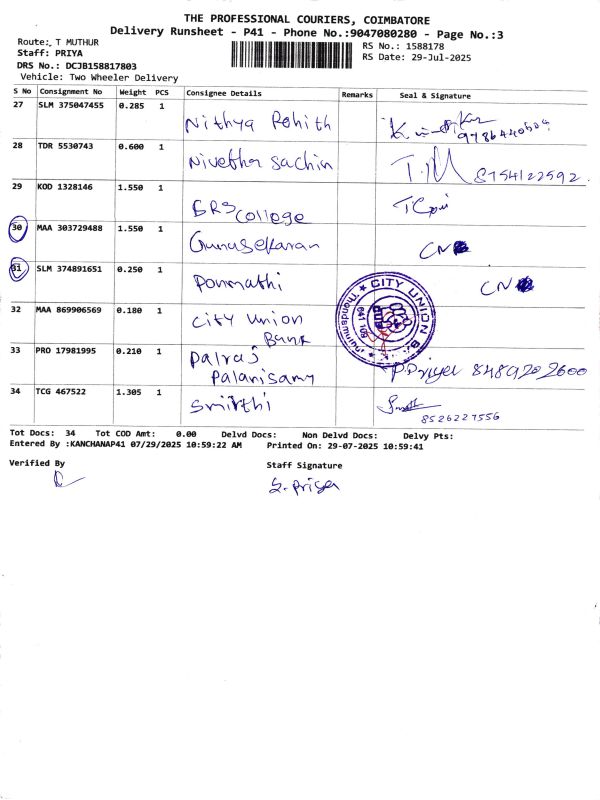 THE PROFESSIONAL COURIERS, COIMBATORE
Delivery Runsheet - P41 - Phone No.:9047080280 - Page No.:3
Route: T MUTHUR
RS No.: 1588178
Staff: PRIYA
RS Date: 29-Jul-2025
DRS No.: DCJB158817803
Vehicle: Two Wheeler Delivery
S No Consignment No Weight PCS Consignee Details Remarks Seal & Signature
27 SLM 375047455 0.285 1
Nithya Rohith
28 TDR 5530743 0.600 1
Nivetha Sachin 8754122592.
29 KOD 1328146 1.550 1
GRS College
30 MAA 303729488 1.550 1
Gunasekaran CN
31 SLM 374891651 0.250 1
Ponmathi CN
32 MAA 869906569 0.180 1
City Union
Bank
CITY UNION
641 109
33 PRO 17981995 0.210 1
Palraj
Palanisamy P.Priya 8489202600
34 TCG 467522 1.305 1
Smirthi
8526227556
Tot Docs: 34 Tot COD Amt: 0.00 Delvd Docs: Non Delvd Docs: Delvy Pts:
Entered By :KANCHANAP41 07/29/2025 10:59:22 AM Printed On: 29-07-2025 10:59:41
Verified By Staff Signature
S. Priya